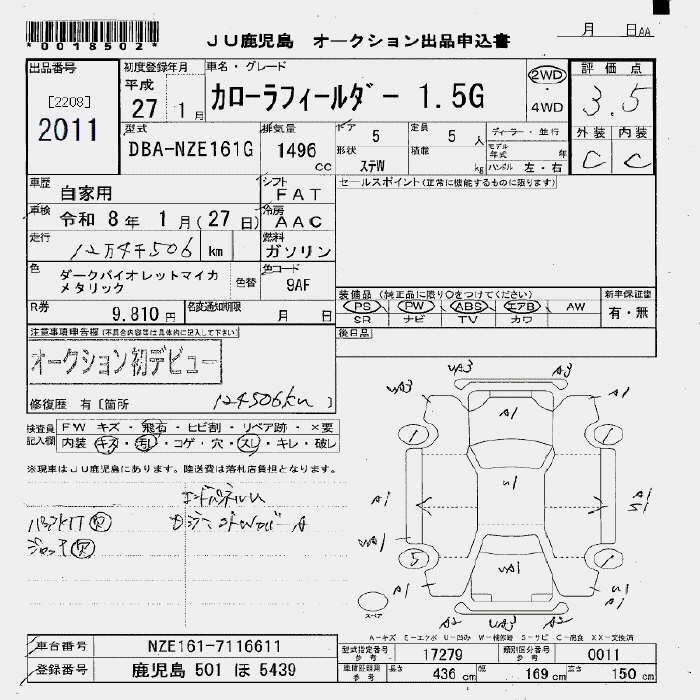 *0018502*
JU鹿児島 オークション出品申込書
月 日AA
出品番号
[2208]
2011
初度登録年月
平成
27 1月
車名・グレード
カローラフィールダー 1.5G
2WD
・
4WD
評価点
3.5
外装 内装
C C
型式
DBA-NZE161G
排気量
1496
cc
ドア
5
定員
5 人
形状
ステW
積載
kg
ディーラー・並行
モデル年式 年
ハンドル 左・右
車歴
自家用
シフト
FAT
車検
令和 8年 1月(27日)
冷房
AAC
走行
12万4千506 km
燃料
ガソリン
色
ダークバイオレットマイカ
メタリック
色替
色コード
9AF
R券
9,810円
名変通知期限
月 日
セールスポイント(正常に機能するものに限ります)
装備品(純正品に限り〇をつけてください)
PS PW ABS エアB AW
SR ナビ TV カワ
新車保証書
有・無
後日品
注意事項申告欄(不具合内容等は具体的に記入して下さい)
オークション初デビュー
修復歴 有〔箇所 124506km 〕
検査員
記入欄
FW キズ・飛石・ヒビ割・リペア跡・×要
内装 キズ・汚レ・コゲ・穴・スレ・キレ・破レ
※現車はJU鹿児島にあります。陸送費は落札店負担となります。
エンドパネルU
A3
A1
A1
A1
A1
A1
A1
A2 A2
スペア
A-キズ E-エクボ U-凹み W-補修跡 S-サビ C-腐食 XX-交換済
車台番号 NZE161-7116611
登録番号 鹿児島 501 ほ 5439
型式指定番号
参考
17279
類別区分番号
参考
0011
車両諸元票
参考
長さ 436 cm 幅 169 cm 高さ 150 cm